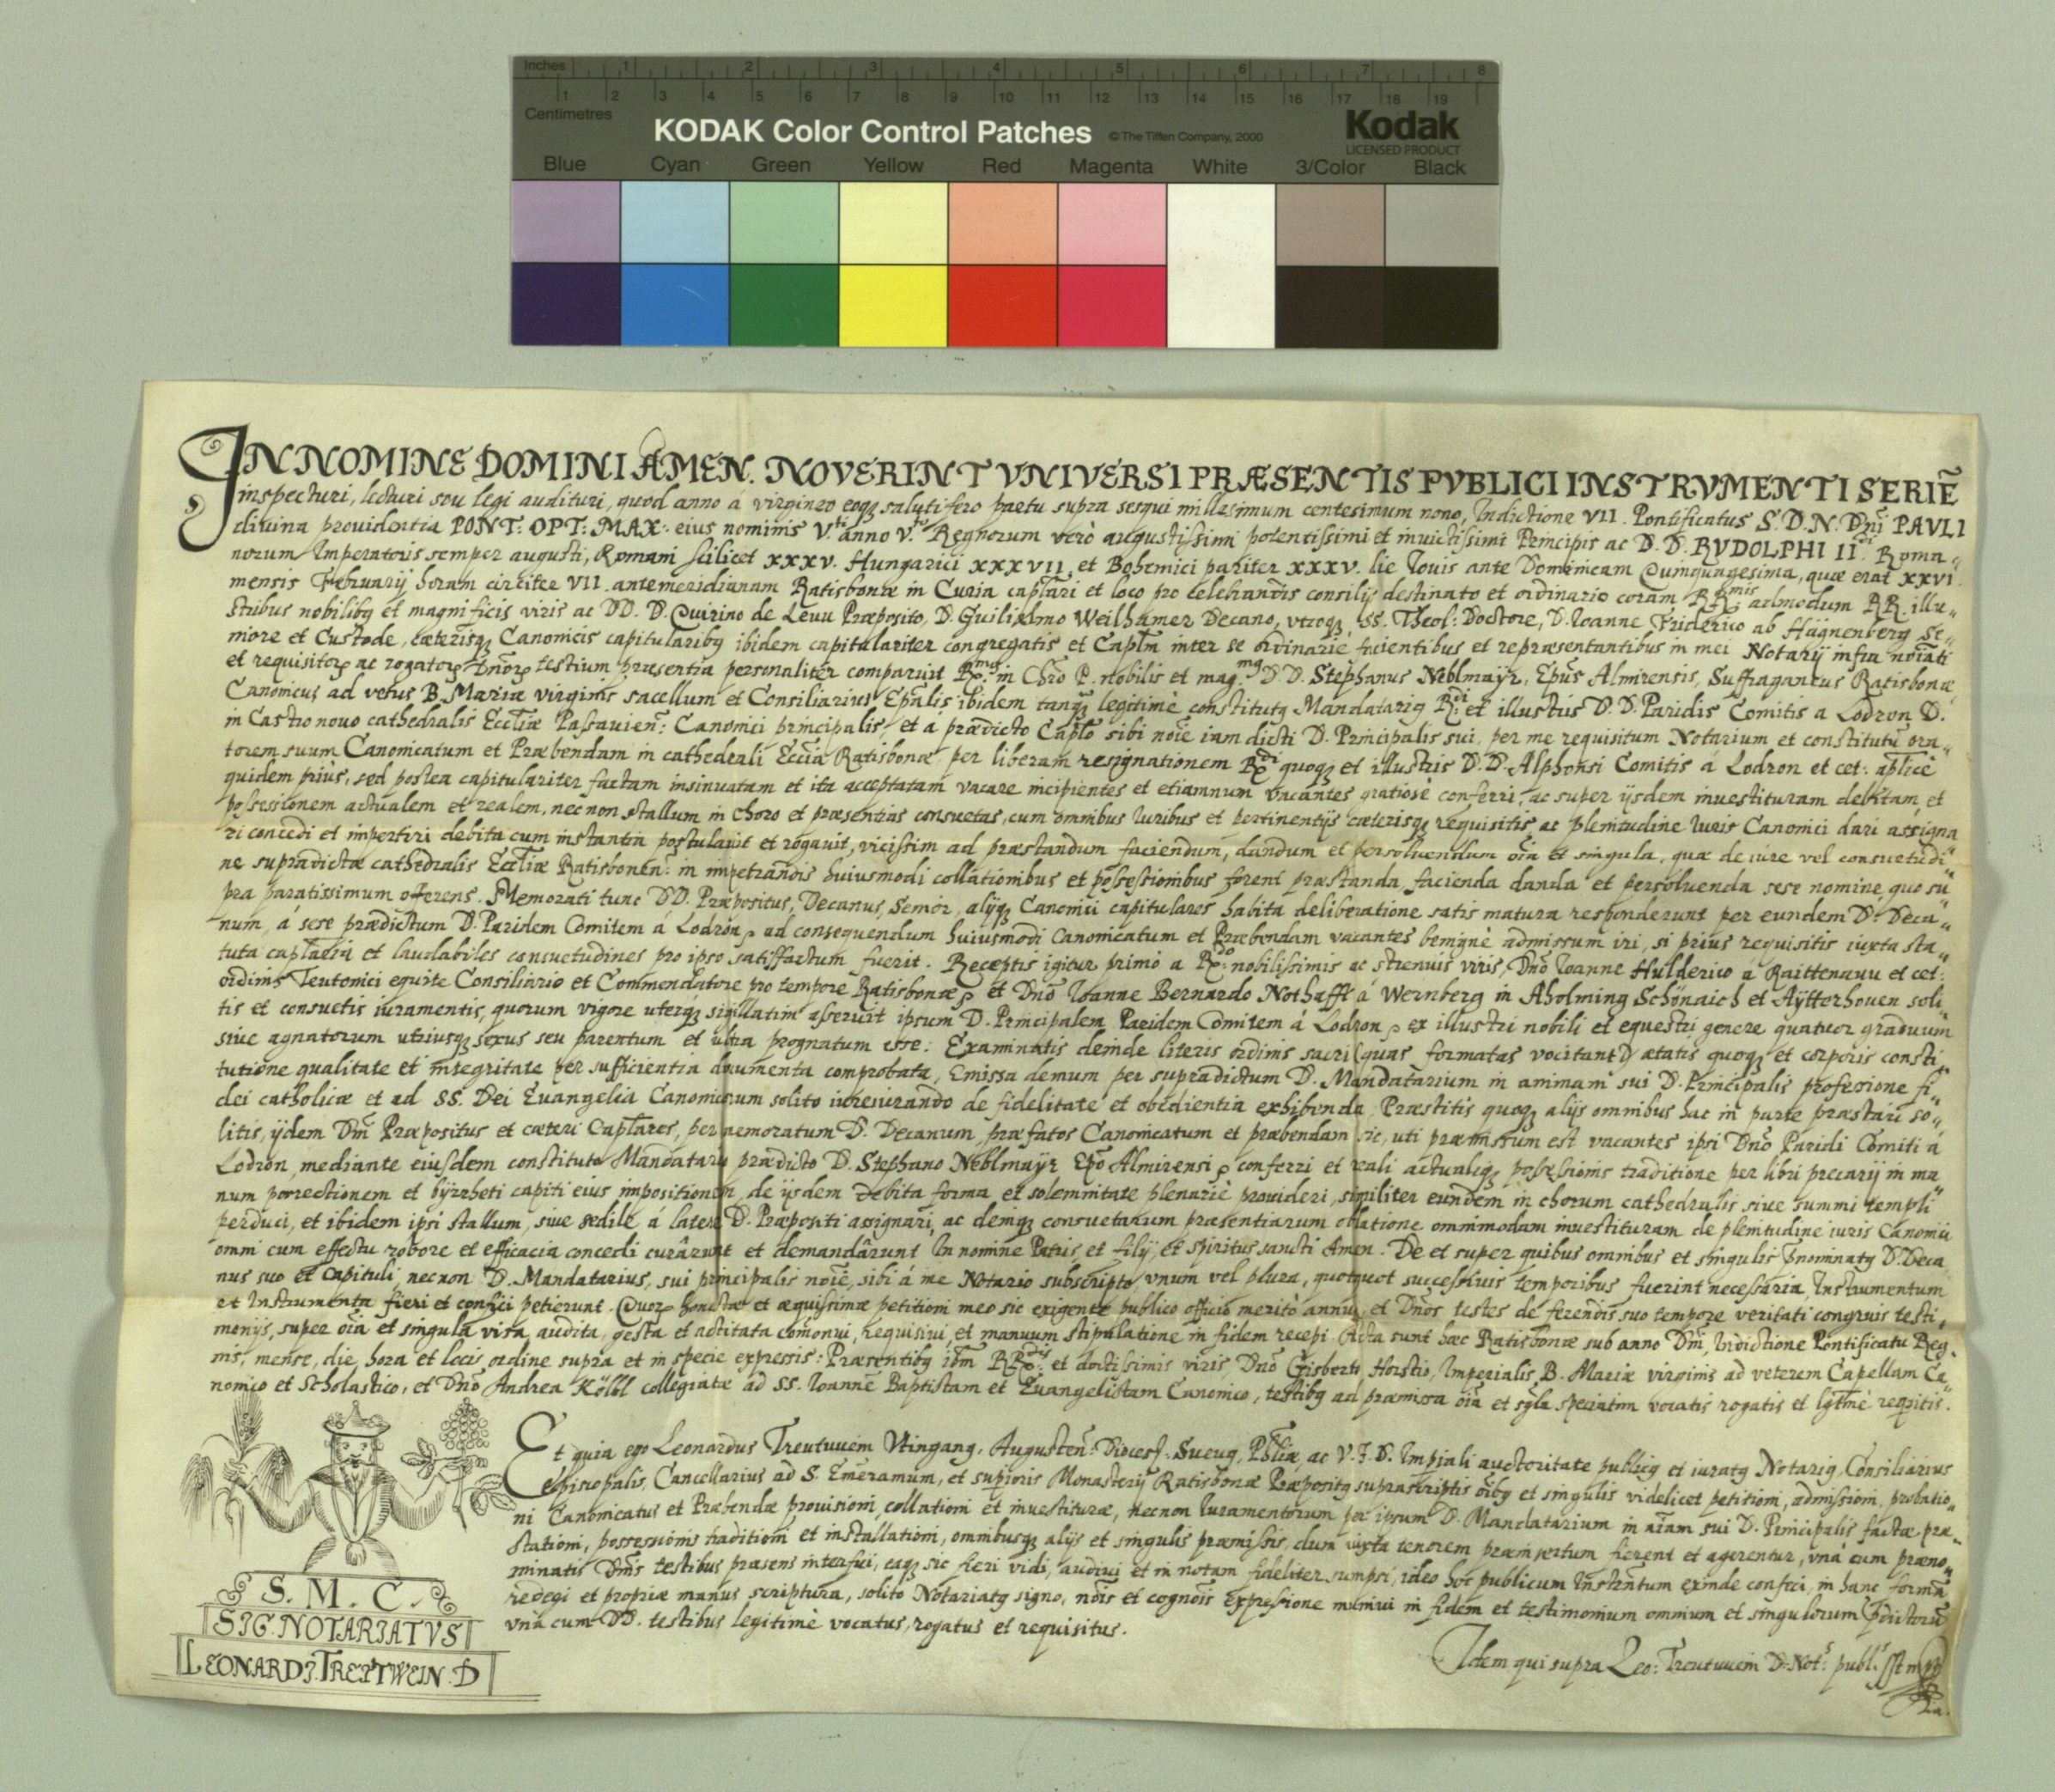 Inches 1 2 3 4 5 6 7 8
1 2 3 4 5 6 7 8 9 10 11 12 13 14 15 16 17 18 19
Centimetres
KODAK Color Control Patches © The Tiffen Company, 2000 Kodak
LICENSED PRODUCT
Blue Cyan Green Yellow Red Magenta White 3/Color Black
IN NOMINE DOMINI AMEN. NOVERINT VNIVERSI PRÆSENTIS PVBLICI INSTRVMENTI SERIE̅
inspecturi, lecturi seu legi audituri, quod anno á virgineo eoqꝫ salutifero partu supra sesqui millesimum centesimum nono, Indictione VII. Pontificatus S. D. N. Dn̅i PAVLI
diuina prouidentia PONT: OPT: MAX: eius nominis V.ti anno V.to Regnorum verò augustissimi potentissimi et inuictissimi Principis ac D. D. RVDOLPHI II.di Roma-
norum Imperatoris semper augusti, Romani scilicet XXXV. Hungarici XXXVII. et Bohemici pariter XXXV. die Iouis ante Dominicam Quinquagesima, quæ erat XXVI.
mensis Februarij horam circiter VII. antemeridianam Ratisbonæ in Curia capl̅ari et loco pro celebrandis consilijs destinato et ordinario coram RR.mis admodum RR. illu-
stribus nobilibꝯ et magnificis viris ac DD. D. Quirino de Leuu Præposito, D. Guilielmo Weilhamer Decano, vtroqꝫ SS. Theol: Doctore, D. Ioanne Friderico ab Hägnenberg Se-
niore et Custode, cæterisqꝫ Canonicis capitularibꝯ ibidem capitulariter congregatis et Capl̅m inter se ordinariè facientibus et repræsentantibus in mei Notarij infra noi̅ati
et requisitorꝝ ac rogatorꝝ dn̅orꝝ testium præsentia personaliter comparuit R.mꝯ in Chr̅o P. nobilis et mag.mꝯ D. D. Stephanus Neblmayr, Ep̅us Almirensis, Suffraganeus Ratisbonæ
Canonicus ad vetus B. Mariæ virginis sacellum et Consiliarius Ep̅alis ibidem tanqꝫ legitimè constitutꝯ Mandatariꝯ R.di et illustris D. D. Paridis Comitis a Lodron D.
in Castro nouo cathedralis Eccl̅iæ Passauien: Canonici principalis, et á prædicto Capl̅o sibi noi̅e iam dicti D. Principalis sui, per me requisitum Notarium et constitutu̅ ora-
torem suum Canonicatum et Præbendam in cathedrali Eccl̅ia Ratisbonæ, per liberam resignationem R.di quoqꝫ et illustris D. D. Alphonsi Comitis á Lodron et cet: apl̅icè
quidem priùs, sed postea capitulariter factam insinuatam et ita acceptatam vacare incipientes et etiamnum vacantes gratiosè conferri, ac super ijsdem inuestituram debitam, et
possessionem actualem et realem, nec non stallum in choro et præsentias consuetas, cum omnibus Iuribus et pertinentijs cæterisqꝫ requisitis ac plenitudine Iuris Canonici dari assigna
ri concedi et impertiri debita cum instantia postulauit et rogauit, vicissim ad præstandum faciendum, dandum et persoluendum oi̅a et singula, quæ de iure vel consuetudi-
ne supradictæ cathedralis Eccl̅iæ Ratisbonen̅: in impetrandis huiusmodi collationibus et possessionibus forent præstanda, facienda danda et persoluenda sese nomine, quo su-
pra paratissimum offerens. Memorati tunc DD. Præpositus, Decanus, Senior, alijqꝫ Canonici capitulares habita deliberatione satis matura responderunt per eundem D. Deca-
num, á sese prædictum D. Paridem Comitem á Lodron ad consequendum huiusmodi Canonicatum et Præbendam vacantes benignè admissum iri, si prius requisitis iuxta sta-
tuta capl̅aria et laudabiles consuetudines pro ipso satisfactum fuerit. Receptis igitur primò a R.do nobilissimis ac strenuis viris, Dn̅o Ioanne Hulderico á Raittenauu et cet:
ordinis Teutonici equite Consiliario et Commendatore pro tempore Ratisbonæ et Dn̅o Ioanne Bernardo Nothafft á Wernberg in Aholming Schönaich et Aÿtterhouen soli-
tis et consuetis iuramentis, quorum vigore uterqꝫ sigillatim asseruit ipsum D. Principalem Paridem Comitem á Lodron ex illustri nobili et equestri genere quatuor graduum
siue agnatorum utriusqꝫ sexus seu parentum et ultra prognatum esse: Examinatis deinde literis ordinis sacri (quas formatas vocitant) ætatis quoqꝫ et corporis consti-
tutione qualitate et integritate per sufficientia documenta comprobata, Emissa demum per supradictum D. Mandatarium in animam sui D. Principalis professione fi-
dei catholicæ et ad SS. Dei Euangelia Canonicorum solito iureiurando de fidelitate et obedientia exhibenda, Præstitis quoqꝫ alijs omnibus hac in parte præstari so-
litis, ijdem Dn̅i Præpositus et cæteri Capl̅ares, per memoratum D. Decanum, præfatos Canonicatum et præbendam sic, uti præmissum est vacantes ipsi Dn̅o Paridi Comiti á
Lodron, mediante eiusdem constituto Mandatario prædicto D. Stephano Neblmayr Ep̅o Almirensi conferri et reali actualiqꝫ possessionis traditione per libri precarij in ma
num porrectionem et byrrheti capiti eius impositionem, de ijsdem debita forma, et solemnitate plenariè prouideri, similiter eundem in chorum cathedralis siue summi templi
perduci, et ibidem ipsi stallum, siue sedile á latere D. Præpositi assignari, ac deniqꝫ consuetarum præsentiarum oblatione ommimodam inuestituram de plenitudine iuris Canonici
omni cum effectu robore et efficacia concedi curârunt et demandârunt, In nomine Patris et filij, et spiritus sancti Amen. De et super quibus omnibus et singulis p̅nominatꝯ D. Deca
nus suo et Capituli, necnon D. Mandatarius, sui principalis noi̅e, sibi á me Notario subscripto, vnum vel plura, quotquot successiuis temporibus fuerint necessaria, Instrumentum
et Instrumenta fieri et confici petierunt. Quorꝝ honestæ et æquissimæ petitioni meo sic exigente publico officio meritò annui, et Dn̅os testes de ferendis suo tempore veritati congruis testi,
monijs, super oi̅a et singula visa, audita, gesta et actitata com̅onui, requisiui, et manuum stipulatione in fidem recepi. Acta sunt hæc Ratisbonæ sub anno Dni̅, Indictione Pontificatu Reg-
nis, mense, die, hora et locis, ordine supra et in specie expressis: Præsentibꝯ ibm̅ RR.dis et doctissimis viris, Dn̅o Gisberto Horstio, Imperialis B. Mariæ virginis ad veterem Capellam Ca-
nonico et Scholastico, et Dn̅o Andrea Kölbl collegiatæ ad SS. Ioanne̅ Baptistam et Euangelistam Canonico, testibꝯ ad præmissa oi̅a et sgl̅a speciatim vocatis rogatis et lgtm̅è reqsitis.
Et quia ego Leonardus Treutuuein Augusten̅: Dioces̅: Sueuꝯ, Phl̅iæ ac V. I. D. Imp̅iali auctoritate publicꝯ et iuratꝯ Notariꝯ, Consiliarius
Episcopalis, Cancellarius ad S. Emeramum, et superioris Monasterij Ratisbonæ Præpositꝯ suprascriptis oi̅bꝯ et singulis videlicet petitioni, admissioni, probatio-
ni Canonicatus et Præbendæ prouisioni, collationi et inuestituræ, necnon Iuramentorum per ipsum D. Mandatarium in ai̅am sui D. Principalis factæ præ-
stationi, possessionis traditioni et installationi, omnibusqꝫ alijs et singulis præmissis, dum iuxta tenorem præinsertum fierent et agerentur, vnà cum præno-
minatis Dn̅is testibus præsens interfui, eaqꝫ sic fieri vidi, audiui et in notam fideliter sumpsi, ideo hoc publicum Instrn̅tum exinde confeci, in hanc forma̅
redegi et propriæ manus scriptura, solito Notariatꝯ signo, nois̅ et cognois̅ expressione muniui in fidem et testimonium omnium et singulorum p̅dictoru̅
vnà cum DD. testibus legitimè vocatus, rogatus et requisitus.
Idem qui supra Leo: Treutuuein D. Nots: publs:
S. M. C.
SIG. NOTARIATVS
LEONARDI. TREYTWEIN. D